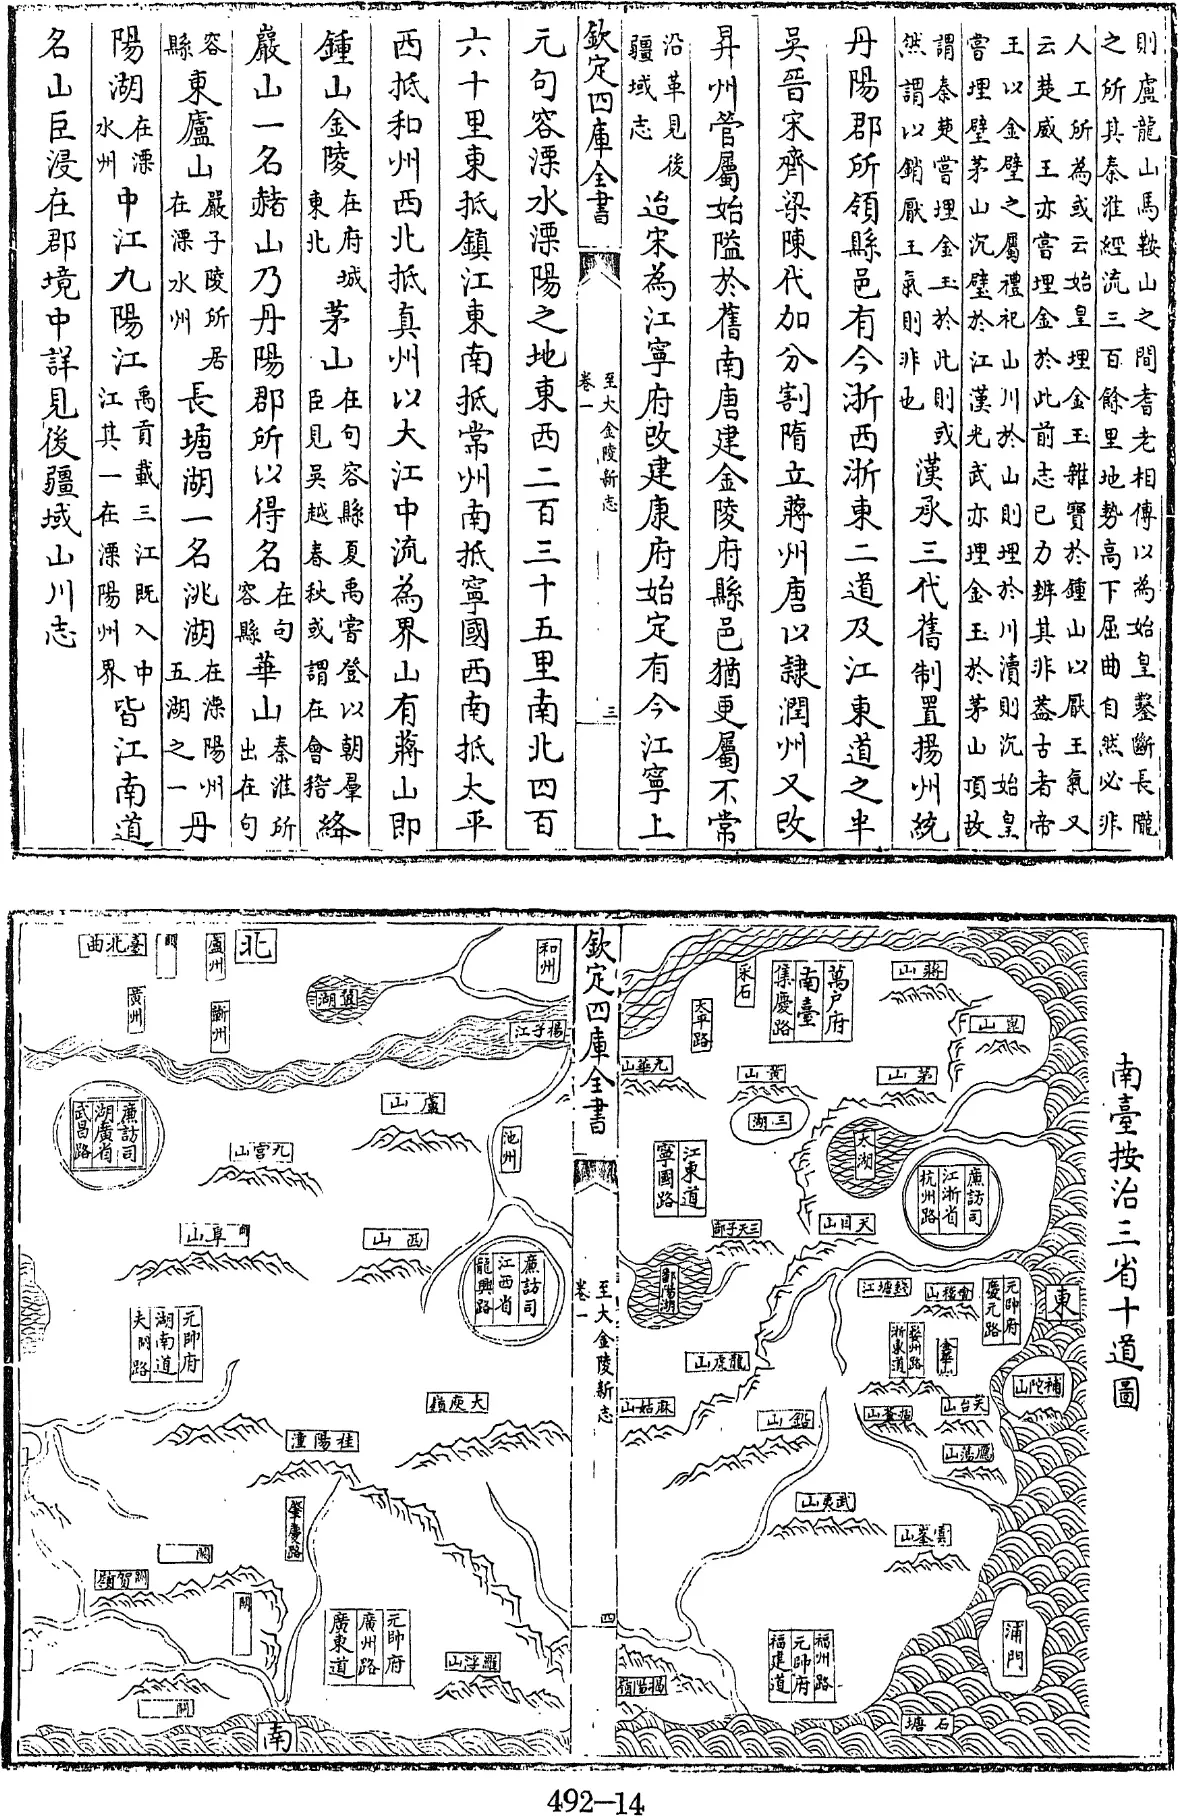 則盧龍山馬鞍山之間耆老相傳以為始皇鑿斷長隴
之所其秦淮經流三百餘里地勢高下屈曲自然必非
人工所為或云始皇埋金玉雜寶於鍾山以厭王氣又
云楚威王亦嘗埋金於此前志已力辨其非葢古者帝
王以金璧之屬禮祀山川於山則埋於川瀆則沉始皇
嘗埋璧茅山沉璧於江漢光武亦埋金玉於茅山頂故
謂秦楚嘗埋金玉於此則或
然謂以銷厭王氣則非也
漢承三代舊制置揚州統
丹陽郡所領縣邑有今浙西浙東二道及江東道之半
吳晉宋齊梁陳代加分割隋立蔣州唐以隸潤州又改
昇州管屬始隘於舊南唐建金陵府縣邑猶更屬不常
沿革見後
疆域志
迨宋為江寧府改建康府始定有今江寧上
欽定四庫全書
至大金陵新志
卷一
三
元句容溧水溧陽之地東西二百三十五里南北四百
六十里東抵鎮江東南抵常州南抵寧國西南抵太平
西抵和州西北抵真州以大江中流為界山有蔣山即
鍾山金陵
在府城
東北
茅山
在句容縣夏禹嘗登以朝羣
臣見吳越春秋或謂在會稽
絳
巖山一名赭山乃丹陽郡所以得名
在句
容縣
華山
秦淮所
出在句
容
縣
東廬山
嚴子陵所居
在溧水州
長塘湖一名洮湖
在溧陽州
五湖之一
丹
陽湖
在溧
水州
中江九陽江
禹貢載三江既入中
江其一在溧陽州界
皆江南道
名山巨浸在郡境中詳見後疆域山川志
南臺按治三省十道圖
東
蔣山
崑山
萬户府
南臺
集慶路
采石
太平路
九華山
黃山
茅山
三湖
太湖
江東道
寧國路
廉訪司
江浙省
杭州路
天目山
三天子鄣
鄱陽湖
錢塘江
會稽山
元帥府
慶元路
婺州路
浙東道
金華山
龍虎山
麻姑山
鉛山
括蒼山
天台山
補陀山
鴈蕩山
武夷山
雲峯山
浦門
福州路
元帥府
福建道
揭陽嶺
石塘
欽定四庫全書
至大金陵新志
卷一
四
北
和州
巢湖
揚子江
廬州
蘄州
黃州
臺北曲
廬山
池州
九宮山
廉訪司
湖廣省
武昌路
西山
阜山
廉訪司
江西省
龍興路
元帥府
湖南道
天門路
大庾嶺
桂陽潼
肇慶路
闕
闕
闕
闕
元帥府
廣州路
廣東道
羅浮山
南
492—14